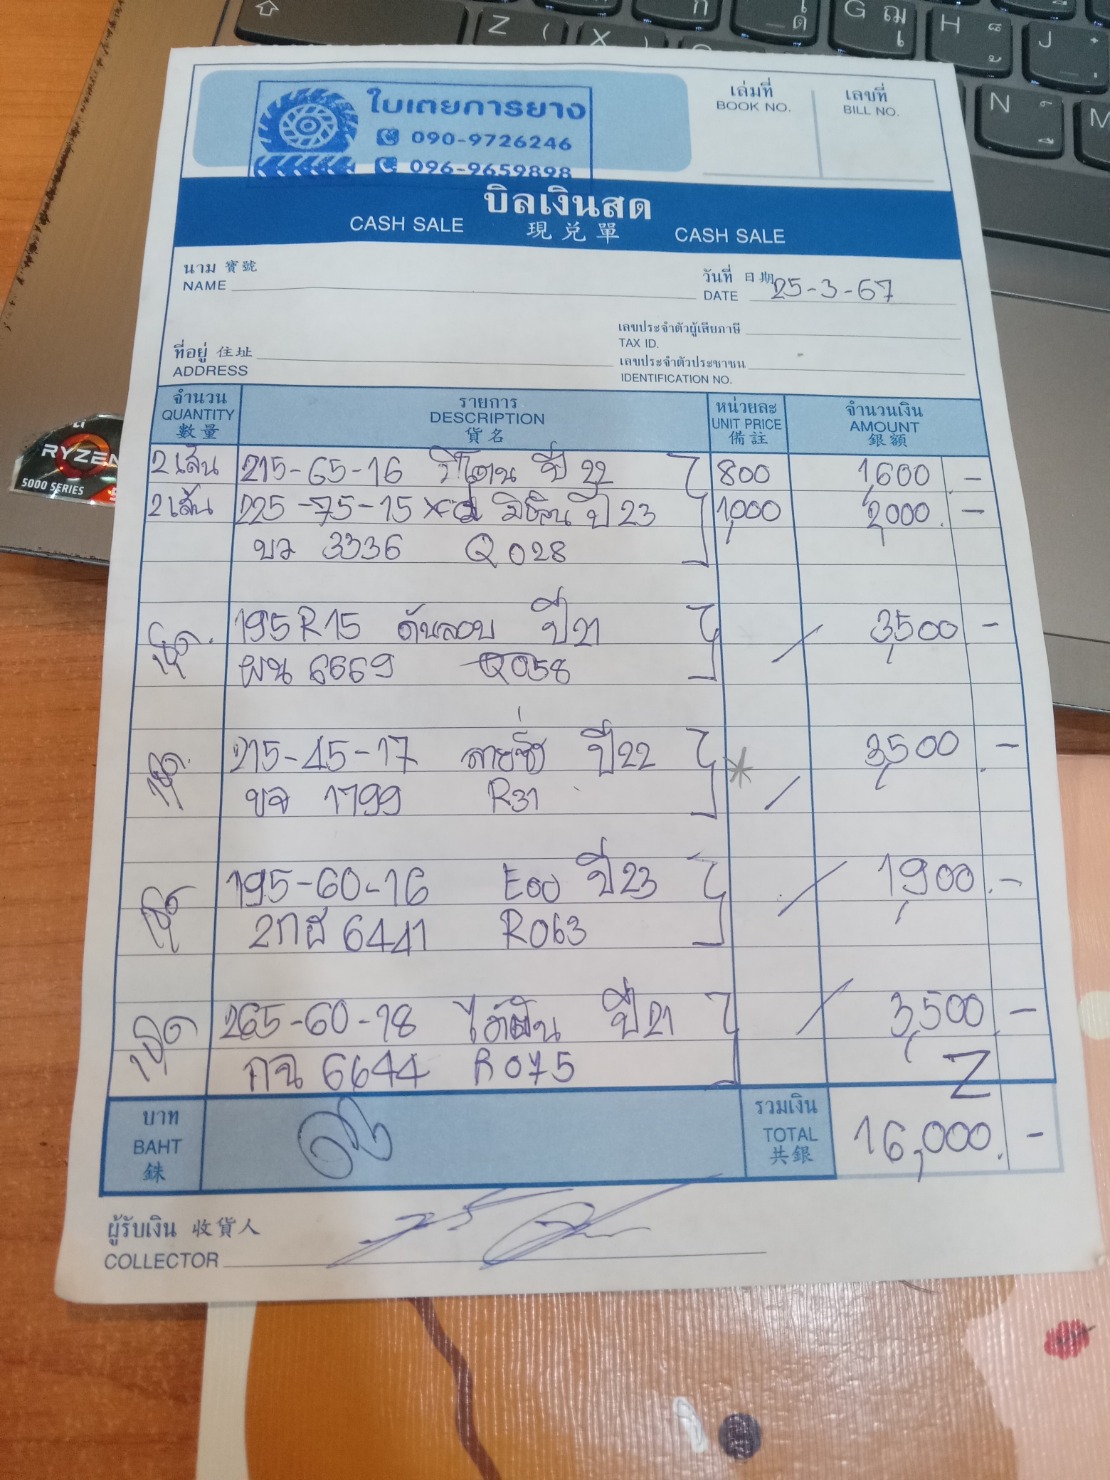 ใบเตยการยาง
090-9726246
096-9659898
เล่มที่
BOOK NO.
เลขที่
BILL NO.
บิลเงินสด
CASH SALE 現兌單 CASH SALE
นาม 寶號
NAME
วันที่ 日期
DATE 25-3-67
เลขประจำตัวผู้เสียภาษี
TAX ID.
ที่อยู่ 住址
ADDRESS
เลขประจำตัวประชาชน
IDENTIFICATION NO.
จำนวน
QUANTITY
數量
รายการ
DESCRIPTION
貨名
หน่วยละ
UNIT PRICE
備註
จำนวนเงิน
AMOUNT
銀額
2 เส้น 215-65-16 ปี 22 800 1,600 .-
2 เส้น 225-75-15 มิชลิน ปี 23 1,000 2,000 .-
3336 Q028
ชุด. 195R15 ดันลอป ปี 21 3,500 -
ผน 6669 Q058
ชุด. 215-45-17 ปี 22 3,500 -
ขจ 1799 R31
ชุด 195-60-16 ปี 23 1,900 .-
2กฮ 6441 R063
ชุด 265-60-18 ปี 21 3,500 -
กฉ 6644 R075
บาท
BAHT
銖
รวมเงิน
TOTAL
共銀
16,000 .-
ผู้รับเงิน 收貨人
COLLECTOR
RYZEN
5000 SERIES
Z
X
G
H
J
N
M